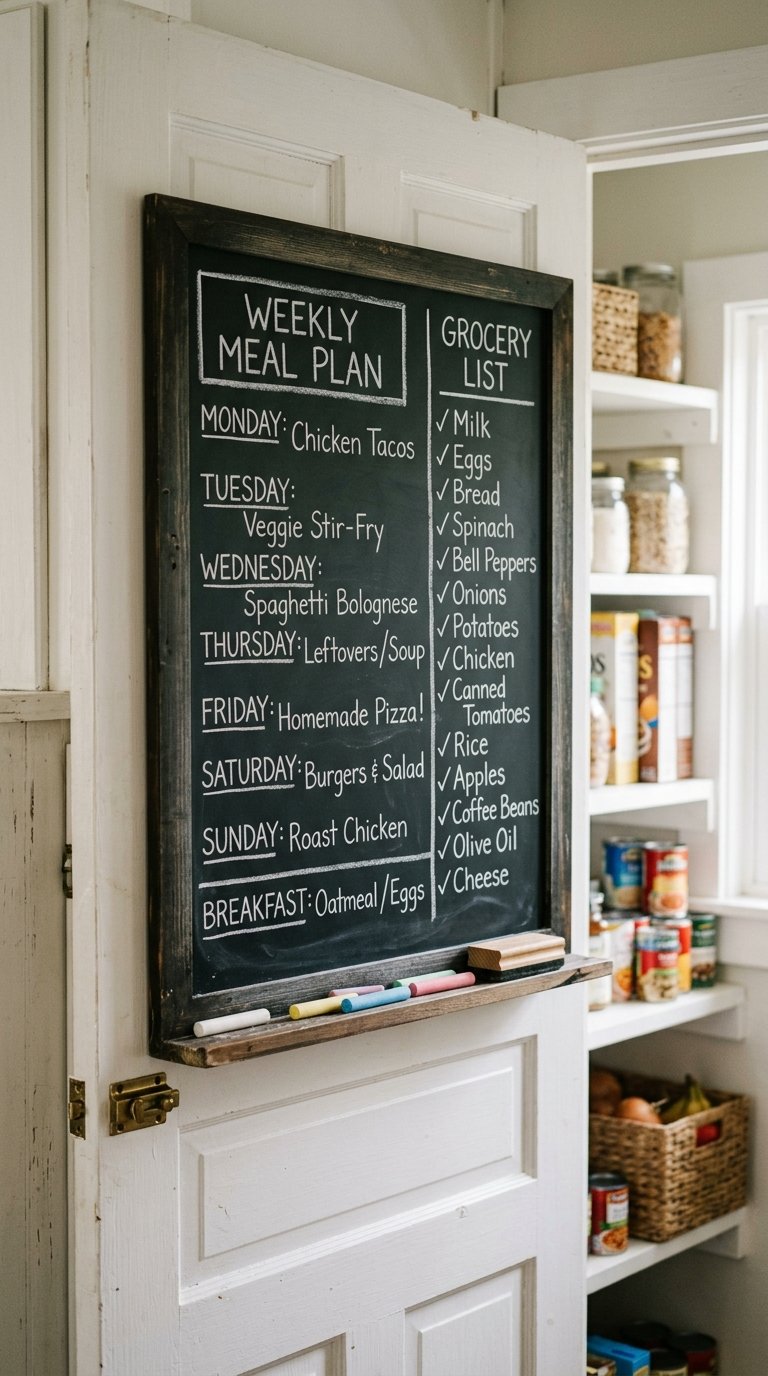 WEEKLY
MEAL PLAN
MONDAY: Chicken Tacos
TUESDAY:
Veggie Stir-Fry
WEDNESDAY:
Spaghetti Bolognese
THURSDAY: Leftovers/Soup
FRIDAY: Homemade Pizza!
SATURDAY: Burgers & Salad
SUNDAY: Roast Chicken
BREAKFAST: Oatmeal/Eggs
GROCERY
LIST
✓ Milk
✓ Eggs
✓ Bread
✓ Spinach
✓ Bell Peppers
✓ Onions
✓ Potatoes
✓ Chicken
✓ Canned
Tomatoes
✓ Rice
✓ Apples
✓ Coffee Beans
✓ Olive Oil
✓ Cheese